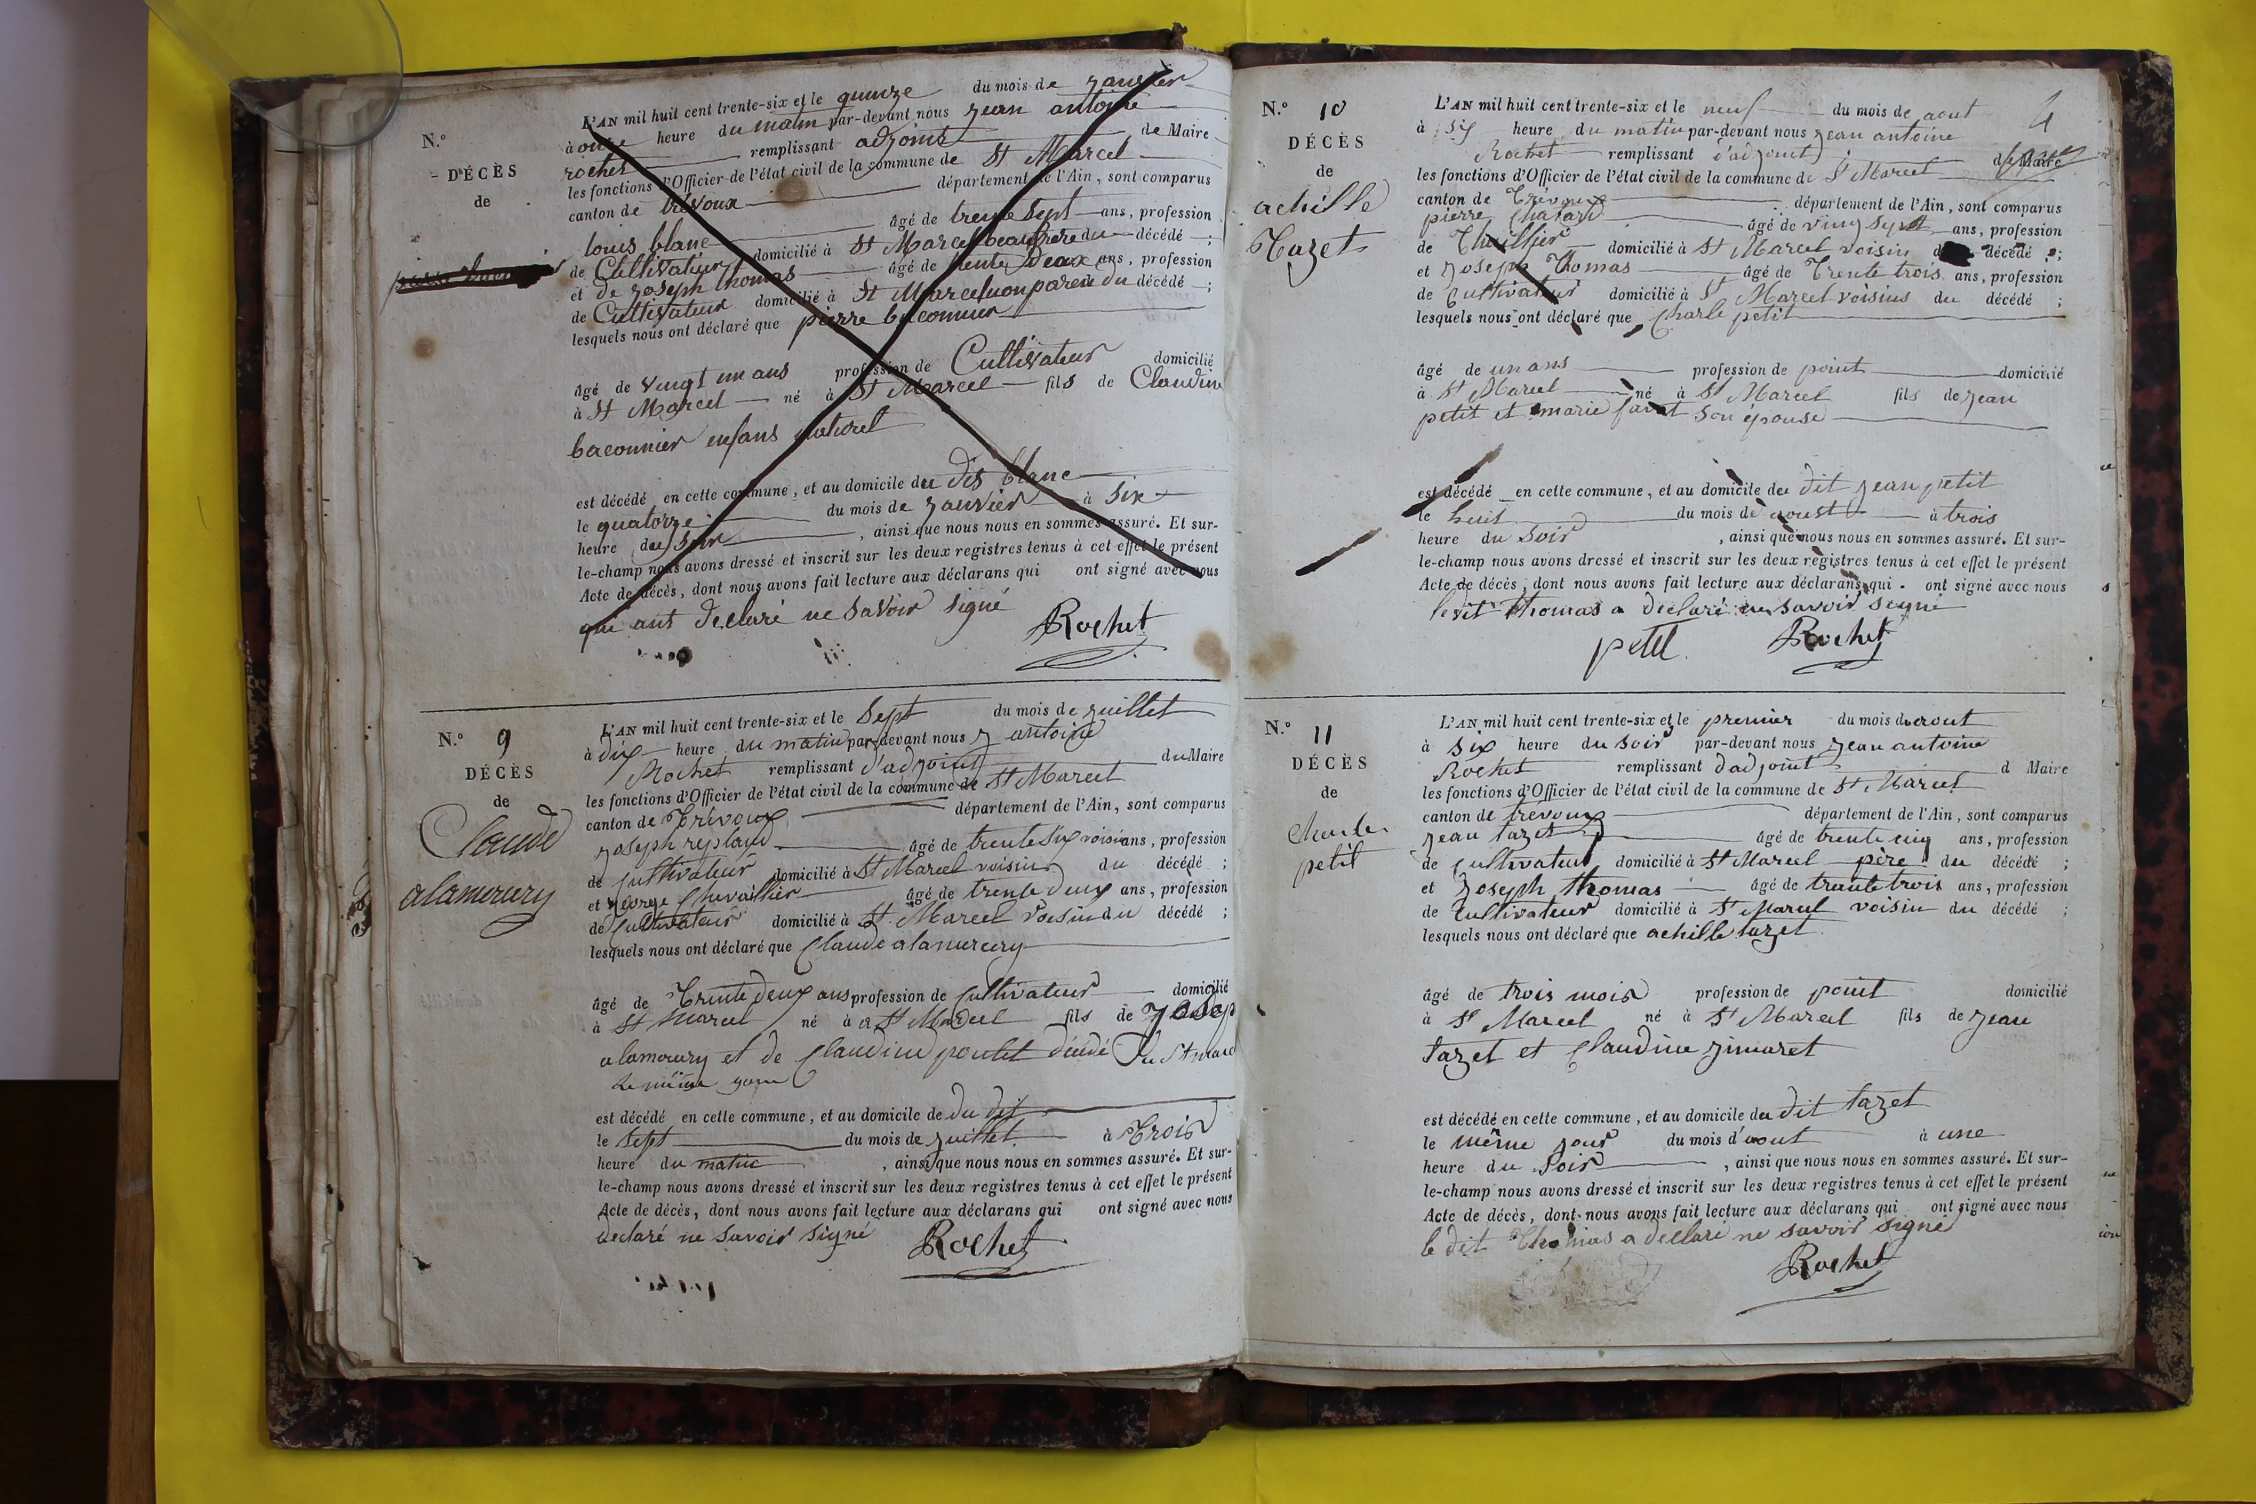 N.º
DÉCÈS
de
L'AN mil huit cent trente-six et le quinze du mois de janvier
à onze heure du matin par-devant nous jean antoine
rochet remplissant adjoint de Maire
les fonctions d'Officier de l'état civil de la commune de St Marcel
canton de trévoux département de l'Ain, sont comparus
louis blanc âgé de trente sept ans, profession
de Cultivateur domicilié à St Marcel beaufrere du décédé ;
et de joseph thomas âgé de trente deux ans, profession
de Cultivateur domicilié à St Marcel non parent du décédé ;
lesquels nous ont déclaré que pierre baconnier
âgé de vingt un ans profession de Cultivateur domicilié
à St Marcel né à St Marcel fils de Claudine
baconnier enfans naturel
est décédé en cette commune, et au domicile du dis blanc
le quatorze du mois de janvier à six
heure du soir, ainsi que nous nous en sommes assuré. Et sur-
le-champ nous avons dressé et inscrit sur les deux registres tenus à cet effet le présent
Acte de décès, dont nous avons fait lecture aux déclarans qui ont signé avec nous
qui ont declaré ne savoir signé
Rochet
N.º 9
DÉCÈS
de
Claude
alamercery
L'AN mil huit cent trente-six et le Sept du mois de juillet
à dix heure du matin par-devant nous j antoine
Rochet remplissant d'adjoint du Maire
les fonctions d'Officier de l'état civil de la commune de St Marcel
canton de Trévoux département de l'Ain, sont comparus
joseph âgé de trente six voisin ans, profession
de cultivateur domicilié à St Marcel voisin du décédé ;
et george Chevallier âgé de trente deux ans, profession
de Cultivateur domicilié à St Marcel voisin du décédé ;
lesquels nous ont déclaré que Claude alamercery
âgé de Trente deux ans profession de Cultivateur domicilié
à St Marcel né à St Marcel fils de josep
alamercery et de Claudine poulet décédé
le même jour
est décédé en cette commune, et au domicile de du dit
le Sept du mois de juillet à Trois
heure du matin, ainsi que nous nous en sommes assuré. Et sur-
le-champ nous avons dressé et inscrit sur les deux registres tenus à cet effet le présent
Acte de décès, dont nous avons fait lecture aux déclarans qui ont signé avec nous
declaré ne savoir signé
Rochet
N.º 10
DÉCÈS
de
achille
Tazet
4
L'AN mil huit cent trente-six et le neuf du mois de aout
à six heure du matin par-devant nous jean antoine
Rochet remplissant d'adjoint de Maire
les fonctions d'Officier de l'état civil de la commune de St Marcel
canton de Trévoux département de l'Ain, sont comparus
pierre âgé de ving sept ans, profession
de domicilié à St Marcel voisin d décédé ;
et joseph Thomas âgé de Trente trois ans, profession
de cultivateur domicilié à St Marcel voisins du décédé ;
lesquels nous ont déclaré que Charle petit
âgé de un ans profession de point domicilié
à St Marcel né à St Marcel fils de jean
petit et marie favat son épouse
est décédé en cette commune, et au domicile du dit jean petit
le huit du mois de aoust à trois
heure du soir, ainsi que nous nous en sommes assuré. Et sur-
le-champ nous avons dressé et inscrit sur les deux registres tenus à cet effet le présent
Acte de décès, dont nous avons fait lecture aux déclarans qui ont signé avec nous
le dit Thomas a declaré ne savoir signé
petit Rochet
N.º 11
DÉCÈS
de
Charle
petit
L'AN mil huit cent trente-six et le premier du mois d'aout
à six heure du soir par-devant nous jean antoine
Rochet remplissant d'adjoint d Maire
les fonctions d'Officier de l'état civil de la commune de St Marcel
canton de trévoux département de l'Ain, sont comparus
jean tazet âgé de trente cinq ans, profession
de cultivateur domicilié à St Marcel père du décédé ;
et joseph thomas âgé de trante trois ans, profession
de Cultivateur domicilié à St Marcel voisin du décédé ;
lesquels nous ont déclaré que achille tazet
âgé de trois mois profession de point domicilié
à St Marcel né à St Marcel fils de jean
tazet et Claudine jimaret
est décédé en cette commune, et au domicile du dit tazet
le même jour du mois d'aout à une
heure du Soir, ainsi que nous nous en sommes assuré. Et sur-
le-champ nous avons dressé et inscrit sur les deux registres tenus à cet effet le présent
Acte de décès, dont nous avons fait lecture aux déclarans qui ont signé avec nous
le dit Thomas a declaré ne savoir signé
Rochet